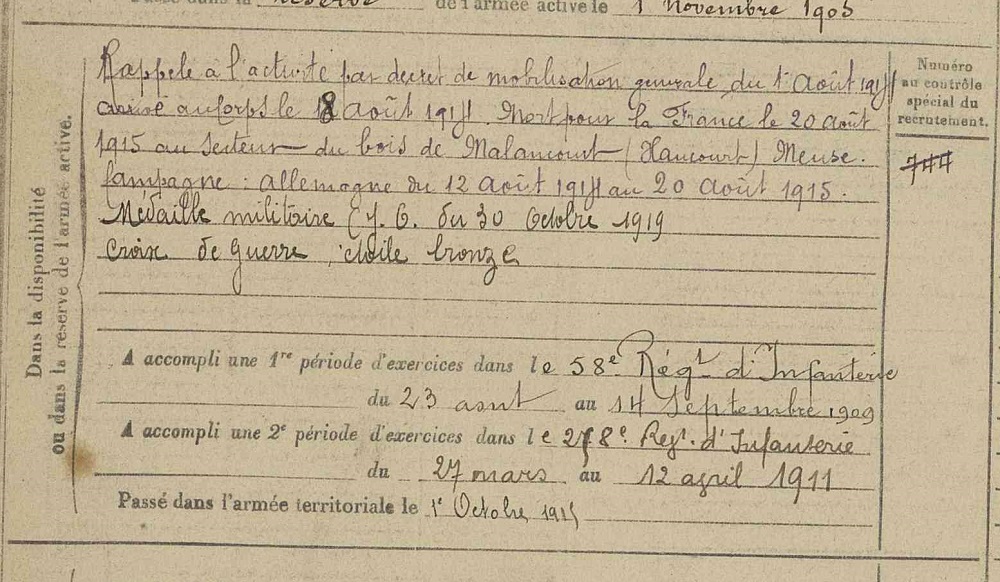 Passé dans la réserve de l'armée active le 1 Novembre 1905
Dans la disponibilité
ou dans la réserve de l'armée active.
Rappelé à l'activité par decret de mobilisation generale du 1er Août 1914
arrivé au corps le 12 Août 1914. Mort pour la France le 20 août
1915 au Secteur du bois de Malancourt (Haucourt) Meuse.
Campagne : allemagne du 12 Août 1914 au 20 Août 1915.
Médaille militaire (J. O. du 30 Octobre 1919
Croix de Guerre, étoile bronze
A accompli une 1re période d'exercices dans le 58e Régt d'Infanterie
du 23 aout au 14 Septembre 1909
A accompli une 2e période d'exercices dans le 258e Regt. d'Infanterie
du 27 mars au 12 april 1911
Passé dans l'armée territoriale le 1e Octobre 1915
Numéro
au contrôle
spécial du
recrutement.